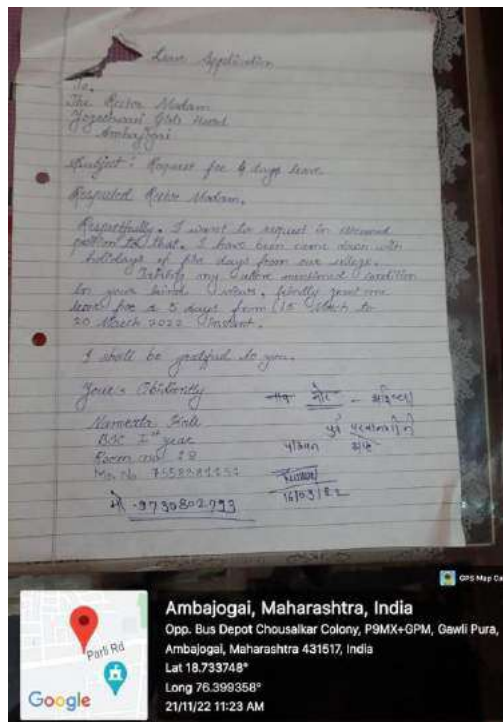 Leave Application
To,
The Rector Madam
Yogeshwari Girls Hostel
Ambajogai
Subject: Request for 4 days leave
Respected Rector Madam,
Respectfully. I want to request in
that. I have been come down with
holidays of five days from our college.
any above mentioned condition
in your kind views. kindly grant me
leave for 5 days from (15 March to
20 March 2022 instant.
I shall be greatful to you.
Your's Obidiently
Namerta
BSC Ist year
Room no 18
Mo. No
मो -9730802793
16/03/22
GPS Map Ca
Parli Rd
Google
Ambajogai, Maharashtra, India
Opp. Bus Depot Chousalkar Colony, P9MX+GPM, Gawli Pura,
Ambajogai, Maharashtra 431517, India
Lat 18.733748°
Long 76.399358°
21/11/22 11:23 AM